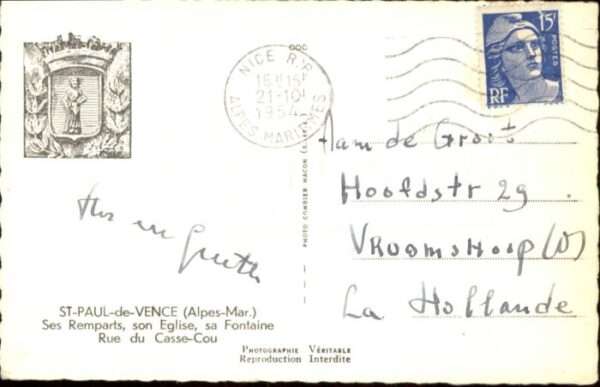 NICE R.P.
16H15
21-10
1954
ALPES MARITIMES
15F
POSTES
RF
Fam de Groot
Hoofdstr 29
VROOMSHOOP (O)
La Hollande
PHOTO COMBIER MACON
ST-PAUL-de-VENCE (Alpes-Mar.)
Ses Remparts, son Eglise, sa Fontaine
Rue du Casse-Cou
PHOTOGRAPHIE VÉRITABLE
Reproduction Interdite